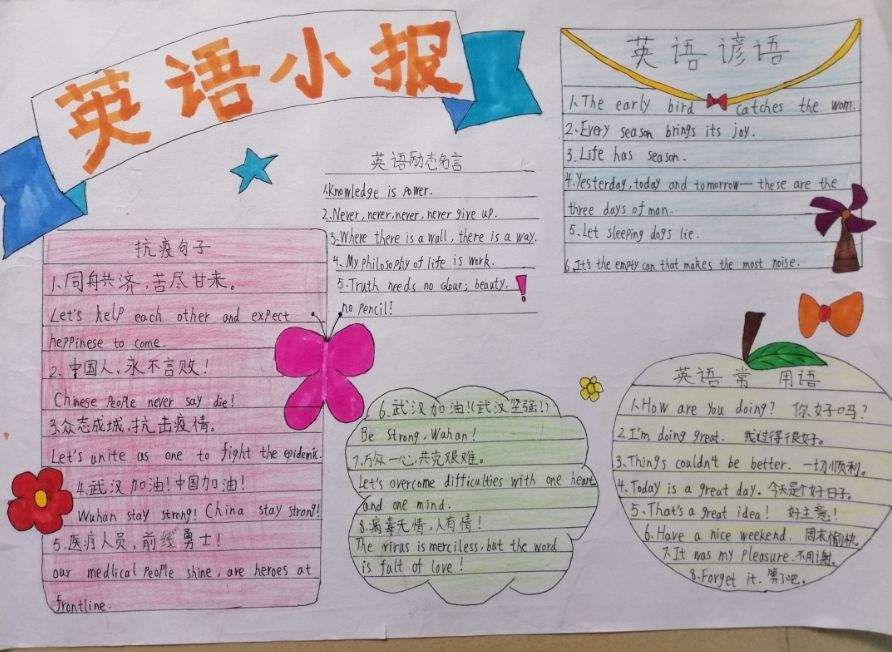 英语小报
抗疫句子
1.同舟共济,苦尽甘来。
Let's help each other and expect
heppinese to come.
2.中国人,永不言败!
Chinese People never say die!
3.众志成城,抗击疫情。
Let's unite as one to fight the epidemic.
4.武汉加油!中国加油!
Wuhan stay strong! China stay strong!
5.医疗人员,前线勇士!
our medlical people shine, are heroes at
frontline.
英语励志名言
1.knowledge is power.
2.Never, never, never, never give up.
3.Where there is a wall, there is a way.
4. My philosophy of life is work.
5.Truth needs no colour; beauty,
no pencil!
6.武汉加油!(武汉坚强!)
Be strong, Wuhan!
7.万众一心,共克艰难。
Let's overcome difficulties with one heart
and one mind.
8.病毒无情,人有情!
The virus is merciless, but the word
is falt of love!
英语谚语
1.The early bird catches the wom.
2.Every season brings its joy.
3.Life has season.
4.Yesterday, today and tomorrow— these are the
three days of man.
5.Let sleeping dogs lie.
6.It's the empty can that makes the most noise.
英语常用语
1.How are you doing? 你好吗?
2.I'm doing great. 我过得很好。
3.Things couldn't be better. 一切顺利。
4.Today is a great day. 今天是个好日子。
5.That's a great idea! 好主意!
6.Have a nice weekend. 周末愉快。
7.It was my pleasure. 不用谢。
8.Forget it. 算了吧。